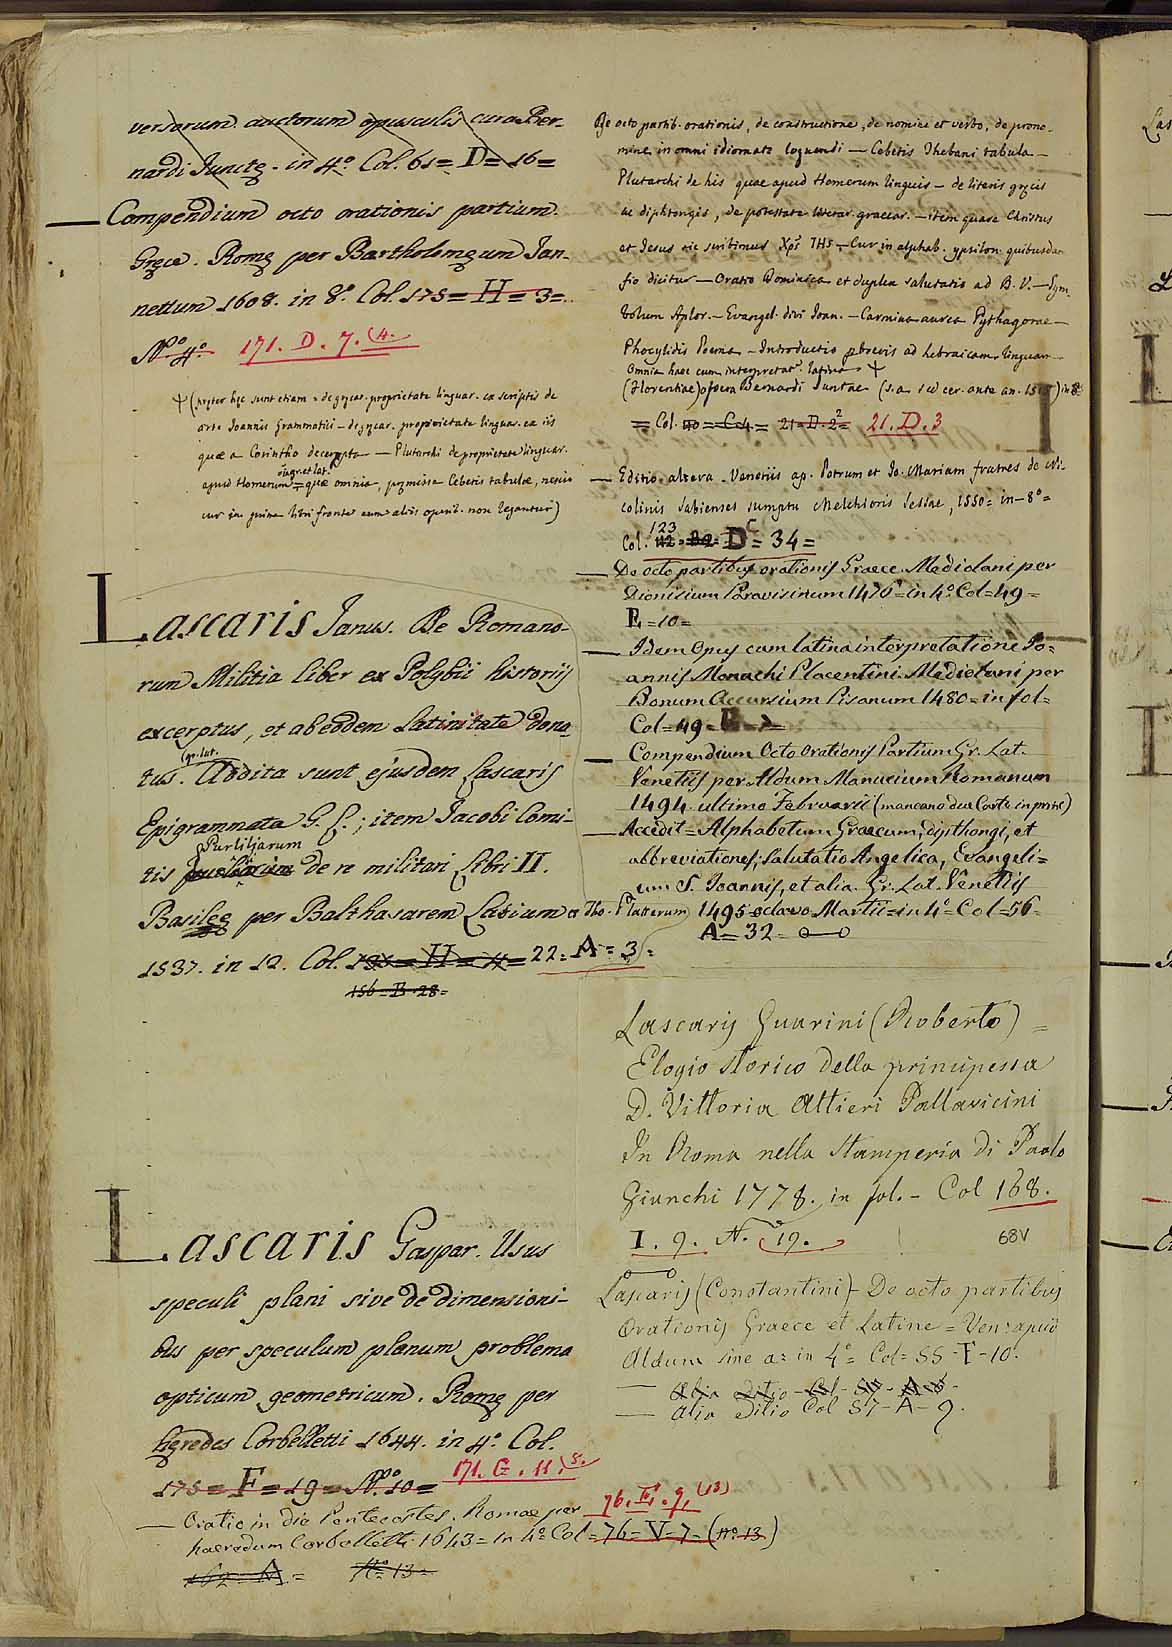 versorum auctorum opusculis cura Ber-
nardi Junctę. in 4.º Col. 61= D= 16=
Compendium octo orationis partium
Gręce. Romę per Bartholomęum Zan-
nettum 1608. in 8.º Col. 175= H= 3=
N.º 4.º 171. D. 7. (4.
(pręter hęc sunt etiam = de gręcar. proprietate linguar. ex scriptis de
arte Joannis Grammatici - de gręcar. proprietate linguar. ex iis
quæ a Corintho decerpta — Plutarchi de proprietate linguar.
apud Homerum = quæ omnia, pręmissa Cebetis tabula, nescio
cur in prima libri fronte cum aliis operib. non legantur)
Lascaris Janus. De Romano-
rum Militia liber ex Polybii historijs
excerptus, et ab eodem Latinitate dona-
(gr. lat.
tus. Addita sunt ejusdem Lascaris
Epigrammata G. L.; item Jacobi Comi-
Purliliarum
tis de re militari Libri II.
Basileę per Balthasarem Lasium et Tho. Platterum
1537. in 12. Col. 195= H= 4= 22= A= 3=
156= B. 28=
Lascaris Gaspar. Usus
speculi plani sive de dimensioni-
bus per speculum planum problema
opticum geometricum. Romę per
hęredes Corbelletti 1644. in 4.º Col.
175= F= 19= N.º 10= 171. G. 11. (8.
76. E. 7. (13)
— Oratio in die Pentecostes. Romae per
haeredum Corbelletti 1643= in 4.º Col= 76= V= 7= (N.º 13)
162= A= N.º 13=
De octo partib. orationis, de constructione, de nomine et verbo, de prono-
mine in omni idiomate loquendi — Cebetis Thebani tabula —
Plutarchi de his quae apud Homerum linguis — de literis gręcis
ac diphtongis, de potestate literar. graecar. — item quare Christus
et Jesus sic scribimus Xps IHS — Cur in alphab. ypsilon quibusdam
fio dicitur — Oratio Dominica et duplex salutatio ad B. V. — Sym-
bolum Aplor. — Evangel. divi Joan. — Carmina aurea Pythagorae —
Phocylidis Poema — Introductio pbrevis ad hebraicam linguam —
Omnia haec cum interpretat. latina
(Florentiae) opera Bernardi Juntae (s. a. sed cer. ante an. 1515) in 8.º
= Col. 40= C. 4= 21= D. 2= 21. D. 3
— Editio altera. Venetiis ap. Petrum et Jo. Mariam fratres de Ni-
colinis Sabienses sumptu Melchioris Sessae, 1550= in-8.º=
Col. 123 D= 34=
— De octo partibus orationis Graece. Mediolani per
Dionisium Paravisinum 1476= in 4.º Col= 49=
E= 10=
— Idem Opus cum latina interpretatione Jo-
annis Monachi Placentini. Mediolani per
Bonum Accursium Pisanum 1480= in fol=
Col= 49=
— Compendium Octo Orationis Partium Gr. Lat.
Venetiis per Aldum Manucium Romanum
1494. ultimo Februarii (mancano due Carte in princ.)
— Accedit= Alphabetum Graecum, dipthongi, et
abbreviationes; Salutatio Angelica, Evangeli=
um S. Joannis, et alia. Gr. Lat. Venetiis
1495 octavo Martii= in 4.º= Col= 56=
A= 32
Lascaris Guarini (Roberto) =
Elogio storico della principessa
D. Vittoria Altieri Pallavicini
In Roma nella Stamperia di Paolo
Giunchi 1778. in fol. - Col 168.
I. 9. N.º 19.
68V
Lascaris (Constantini) - De octo partibus
Orationis Graece et Latine = Ven: apud
Aldum sine a: in 4.º= Col= 55-F-10.
— Alia editio -
— Alia editio Col 57-A-9.